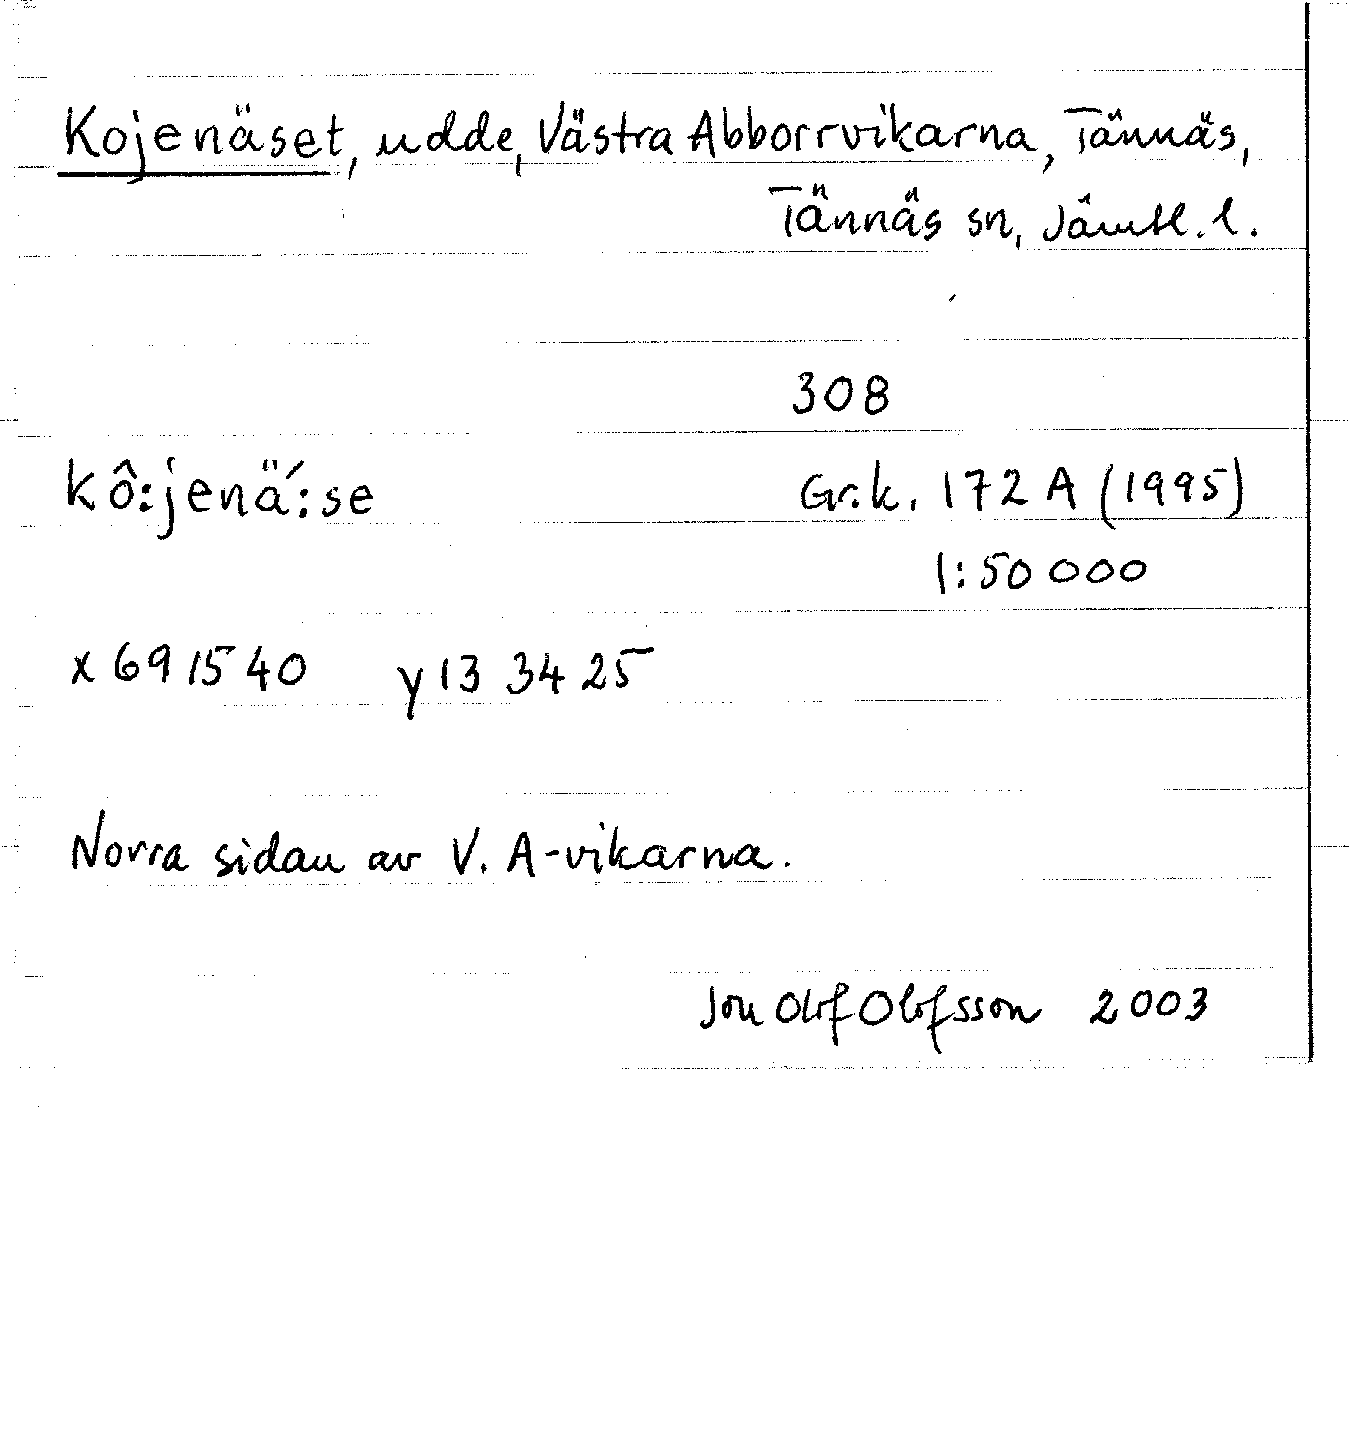 Kojenäset, udde, Västra Abborrvikarna, Tännäs,
Tännäs sn, Jämtl. l.
308
kô:jenä́:se Gr.k. 172 A (1995)
1:50 000
x 69 15 40 y 13 34 25
Norra sidan av V. A-vikarna.
Jon Olof Olofsson 2003